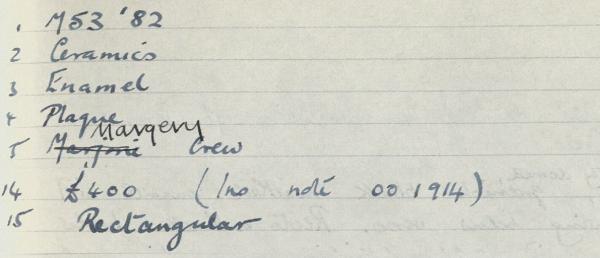 1 M53 '82
2 Ceramics
3 Enamel
4 Plaque
5 Marjorie Margery Crew
14 £400 (Ino note 00 1914)
15 Rectangular